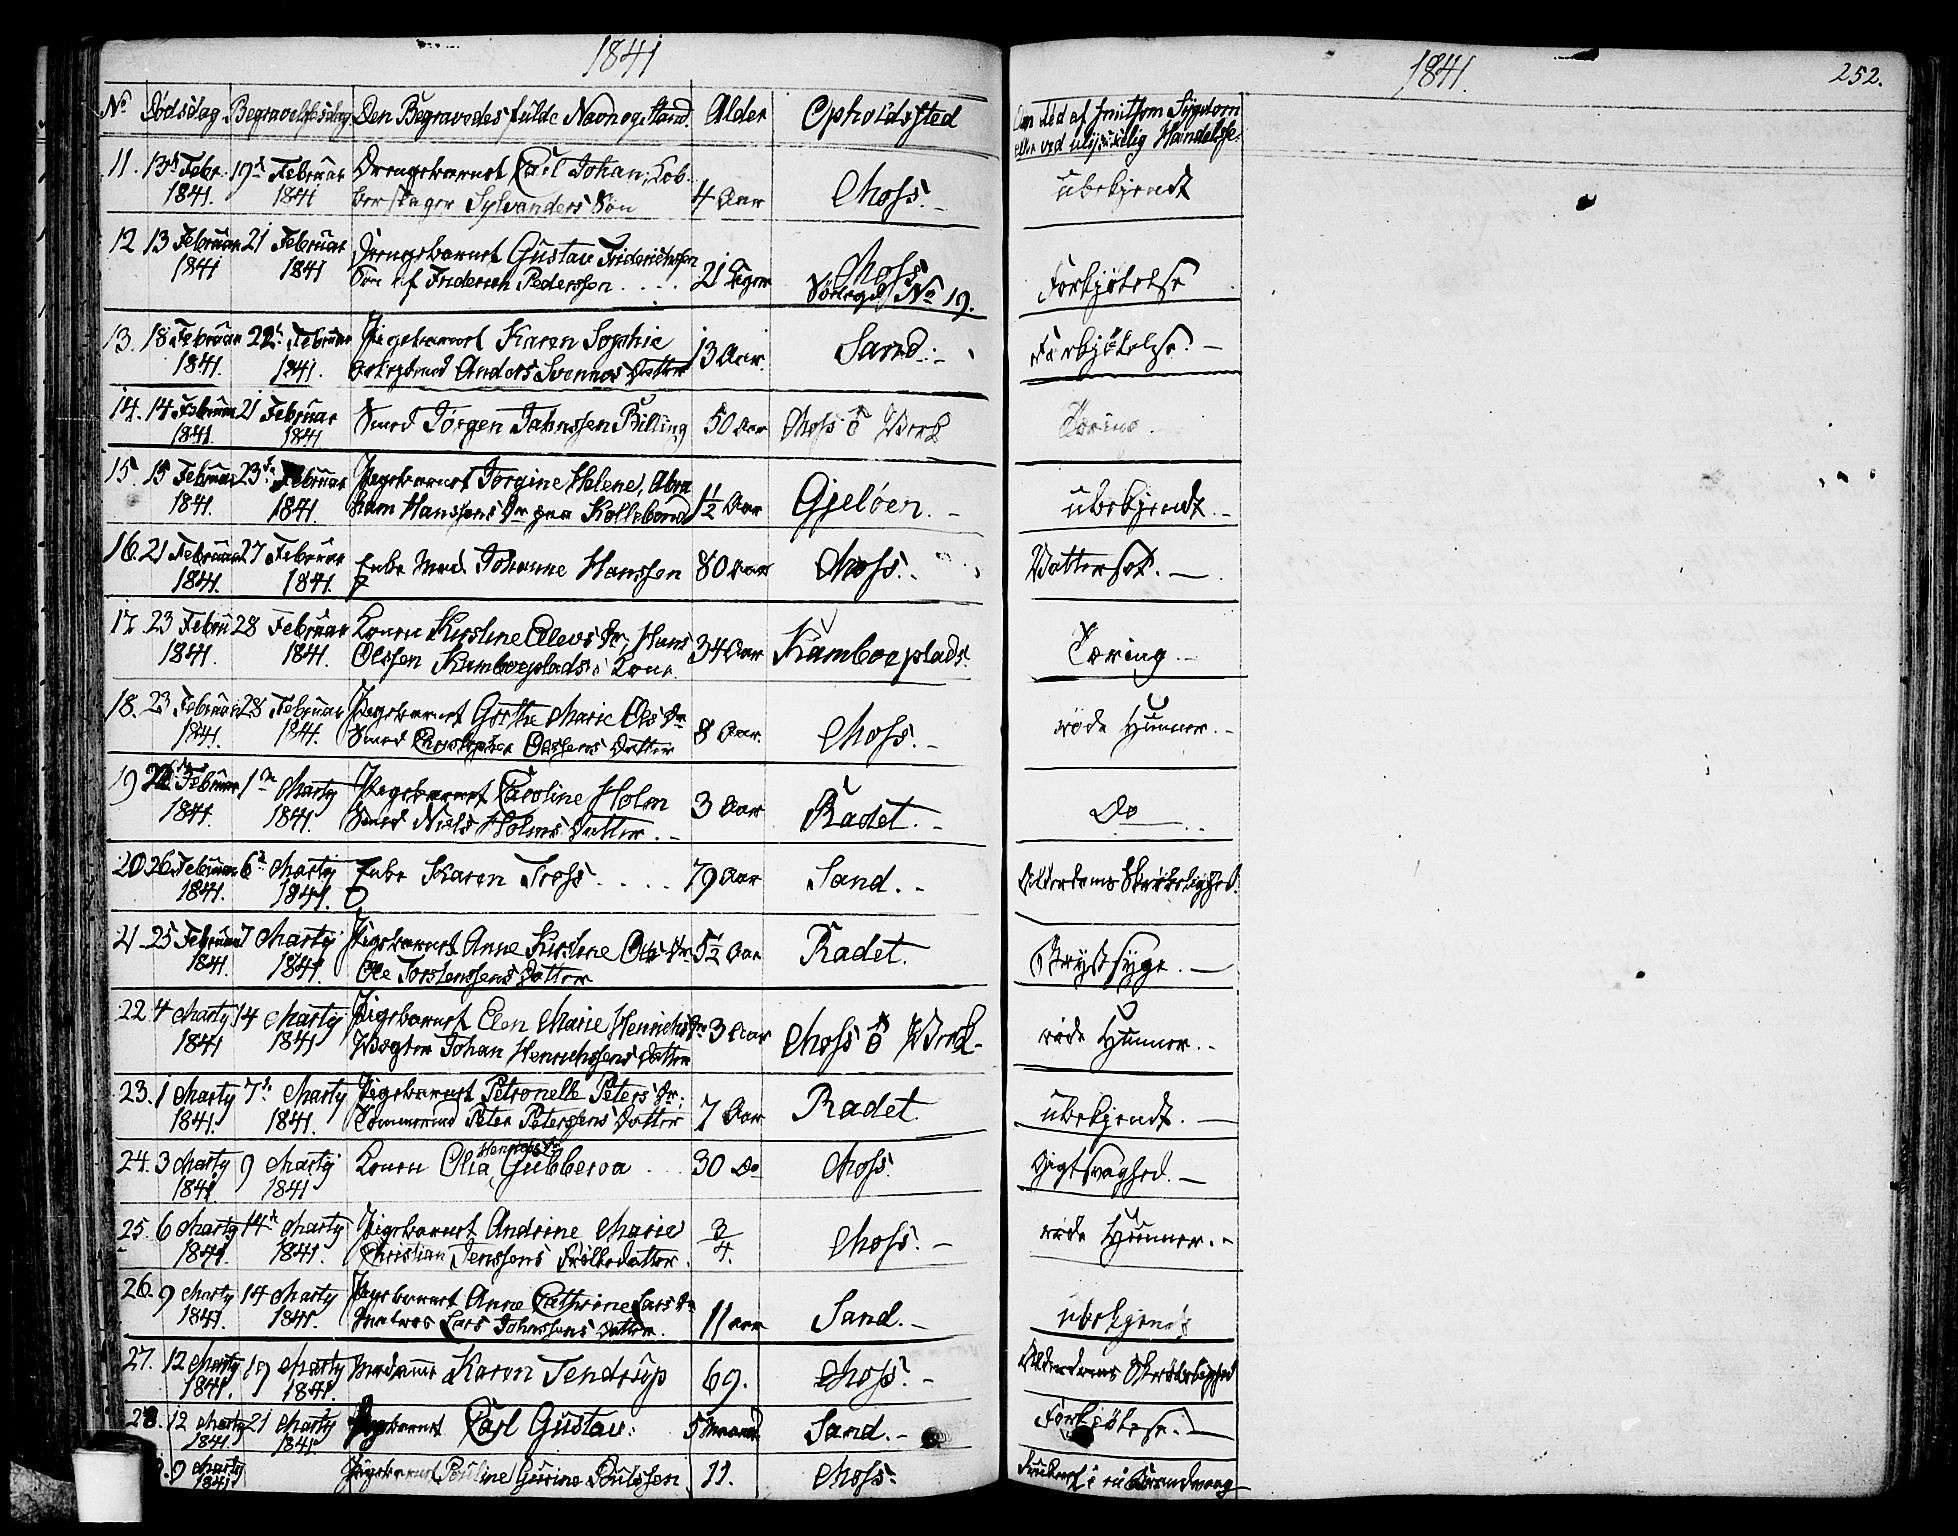 1841
1841.
252.
No Dødsdag Begravelsesdag Den Begravedes fulde Navn og Stand. Alder Opholdssted
Om død af smitsom Sygdom
eller ved ulykkelig Hændelse.
11. 13de Febr. 1841. 19de Februar 1841 Drengebarnet Carl Johan, Kob-
berslager Sylvanders Søn 4 Aar Moss. ubekjendt
12 13 Februar 1841 21 Februar 1841 Drengebarnet Gustav Friderichsen
Søn af Friderich Pederssen 21 Moss No 19. Forkjølelse
13. 18 Februar 1841. 22de Februar 1841. Pigebarnet Karen Sophie
Anders Svennes Datter 13 Aar. Sand. Forkjølelse.
14. 14 Februar 1841. 21 Februar 1841 Smed Jørgen Jahnssen Billing 50 Aar Moss Værk
15. 15 Februar 1841. 23de Februar 1841. Pigebarnet Jørgine Helene, Abra
ham Hanssens Dr paa 1½ Aar Gjeløen. ubekjendt.
16. 21 Februar 1841. 27 Februar 1841. Enke Mad. Johanne Hanssen 80 Aar Moss. Vattersot.
17. 23 Februar 1841. 28 Februar 1841. Konen Kirstine Olevs Dr, Hans
Olssen Kamboeplads Kone 34 Aar Kamboeplads. Tæring.
18. 23 Februar 1841. 28 Februar 1841. Pigebarnet Grethe Marie Ols Dr
Smed Christopher Olssens Datter 8 Aar. Moss. røde Hunner.
19 Februar 1841. 1ste Marty 1841. Pigebarnet Caroline Holm
Smed Niels Holms Datter. 3 Aar Radet. Do
20 26. Februar 1841. 6te Marty 1841. Enke Karen Moss 79 Aar Sand. Alderdoms Skrøbelighed.
21. 25 Februar 1841. 7 Marty 1841. Pigebarnet Anne Kirstine Ols Dr
Ole Torstenssens Datter 5½ Aar Radet. Brystsyge.
22. 4 Marty 1841 14 Marty 1841 Pigebarnet Elen Marie Henrichs Dr
Vægter Johan Henrichssens Datter 3 Aar Moss Værk røde Hunner.
23. 1 Marty 1841. 7de Marty 1841. Pigebarnet Petronelle Peters Dr;
Tømmermd Peter Peterssens Datter 7 Aar Radet. ubekjendt.
24. 3 Marty 1841 9 Marty 1841 Konen Olia Gubberva 30 Do Moss. Gigtsvaghed.
25. 6 Marty 1841. 14de Marty 1841. Pigebarnet Andrine Marie
Christian Jenssens Datter. 3/4. Moss. røde Hunner.
26. 9 Marty 1841. 14 Marty 1841. Pigebarnet Anne Cathrine Lars Dr
Matros Lars Johnssens Datter. 11 aar Sand. ubekjendt
27. 12 Marty 1841. 19 Marty 1841. Madame Karen Tendrup 69. Moss. Alderdoms Skrøbelighed
28. 12 Marty 1841. 21 Marty 1841. Carl Gustav. 5 Maaned. Sand. Forkjølelse.
9 Marty 1841 Pigebarnet Pouline Gurine Poulssen 11. Moss.